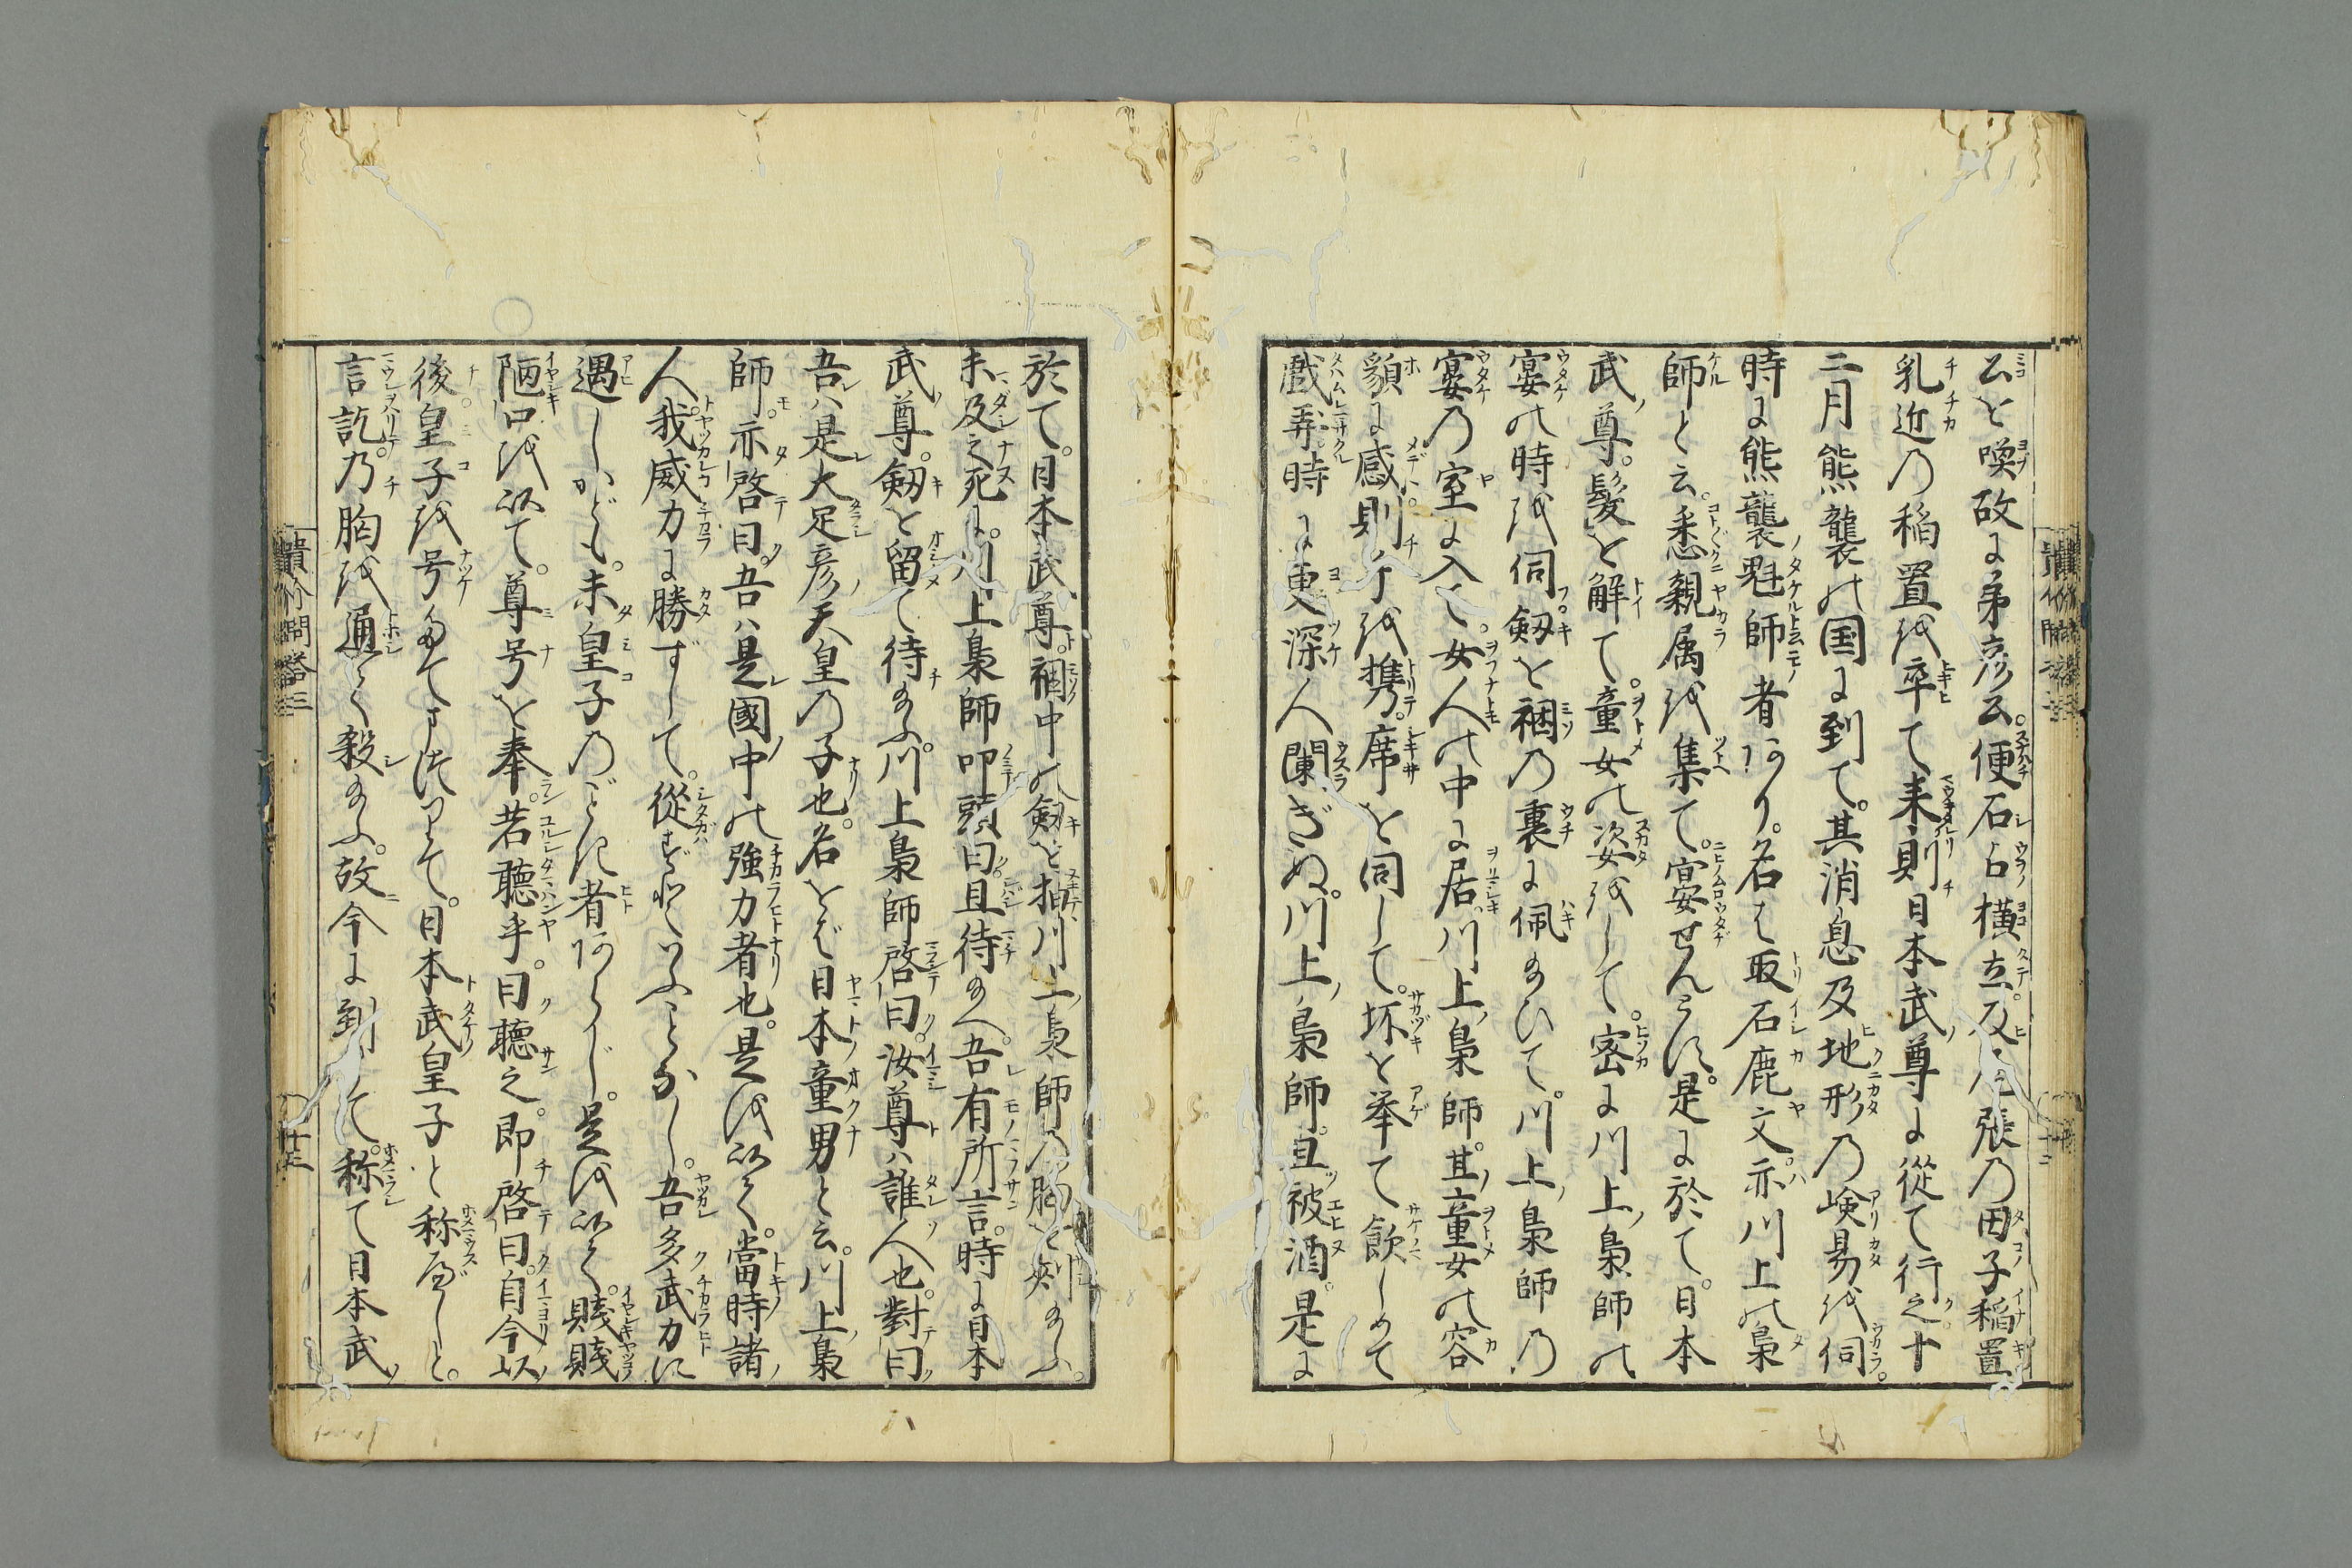 公を喚故に弟彦公。便石占横立及尾張乃田子稲置
乳近の稲置を卒て来則日本武尊に従て行之十
二月熊襲の国に到て。其消息及地形の嶮易を伺。
時に熊襲魁師者あり。名は取石鹿文。亦川上の梟
師と云。悉親属を集て。宴せんとす。是に於て。日本
武尊。髪を解て。童女の姿をして。密に川上梟師の
宴の時を伺剱を裀の裏に佩給ひて。川上梟師の
宴の室に入て。女人の中に居。川上梟師。其童女の容
貌に感。則手を携。席を同して。坏を挙て飲しめて
戯弄。時に更深人闌ぎぬ。川上梟師。且被酒。是に
於て。日本武尊。裀中の剱を抽川上梟師の胸を刺給ふ。
未及之死に。川上梟師叩頭曰且待給へ。吾有所言。時に日本
武尊。剱を留て待給ふ。川上梟師啓曰。汝尊ハ誰人也。對曰
吾ハ是大足彦天皇の子也。名をば日本童男と云。川上梟
師。亦啓曰。吾ハ是國中の強力者也。是を以て。當時諸
人。我威力に勝ずして。從ずといふことなし。吾多武力に
遇しかども。未皇子のごとき者あらじ。是を以て。賤賤
陋口を以て。尊号を奉。若聽乎。曰聽之。即啓曰。自今以
後皇子を号奉てまつりて。日本武皇子と称べしと。
言訖。乃胸を通て殺給ふ。故今に到て。称て日本武